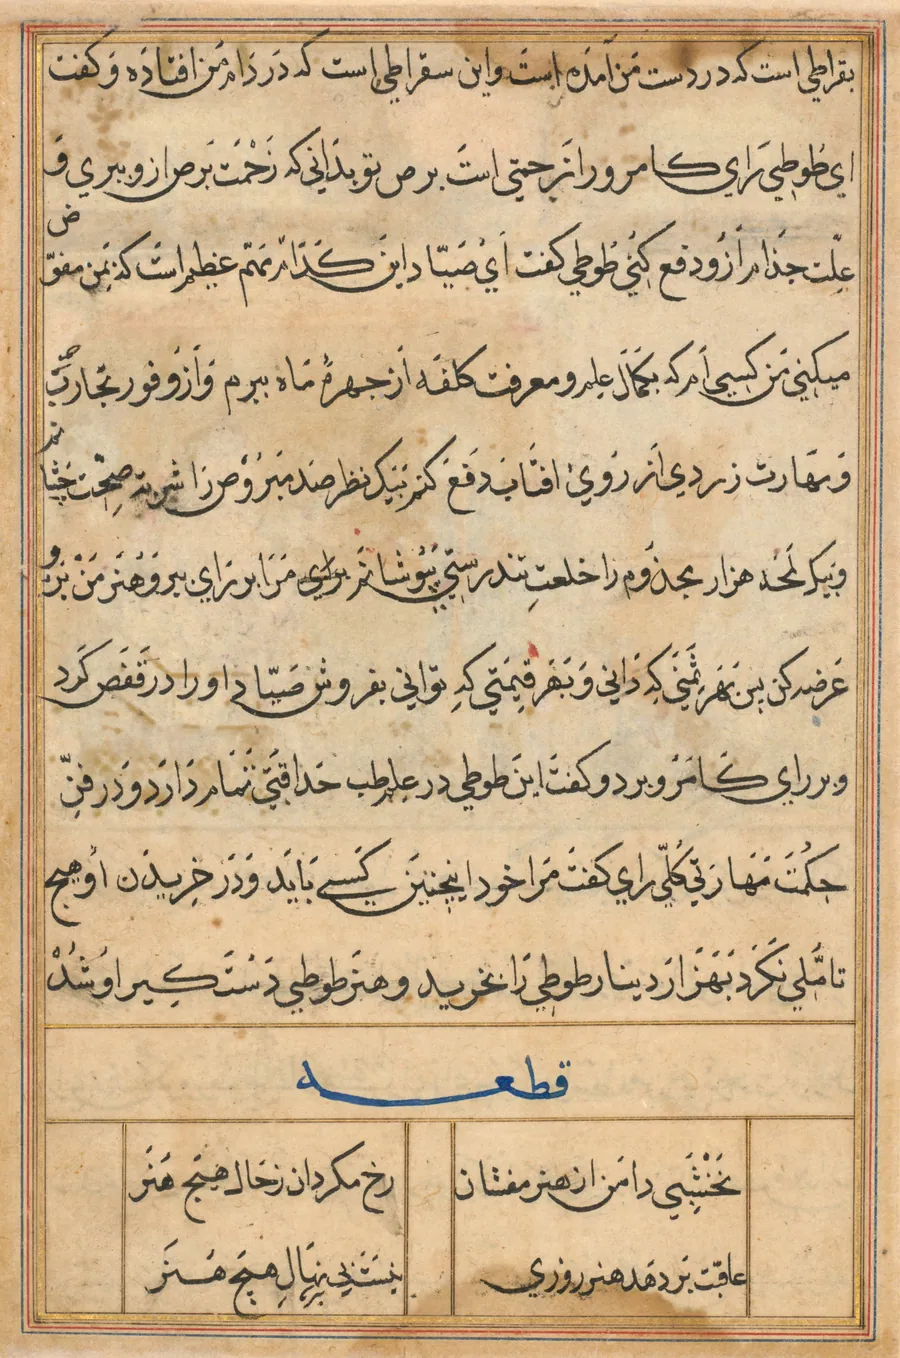 بقراطی است که در دست من آمده است و این سقراطی است که در دام من افتاده و گفت
ای طوطی رای کامرو را زحمتی است برص تو بدانی که زحمت برص ازو ببری و
علت جذام ازو دفع کنی طوطی گفت ای صیاد این کدام مهم عظیم است که بمن مفوض
میکنی من کسی ام که بکمال علم و معرفت کلفه از چهرهٔ ماه ببرم و از وفور تجارب
و مهارت زردی از روی افتاب دفع کنم بیک نظر صد مبروص را شربت صحت چشانم
و بیک لمحه هزار مجذوم را خلعت تندرستی پوشانم مرا بر رای ببر و هنر من برو
عرضه کن پس بهر ثمنی که دانی و بهر قیمتی که توانی بفروش صیاد او را در قفص کرد
و بر رای کامرو برد و گفت این طوطی در علم طب حداقتی تمام دارد و در فن
حکمت مهارتی کلی رای گفت مرا خود اینچنین کسی باید و در خریدن او هیچ
تاملی نکرد بهزار دینار طوطی را بخرید و هنر طوطی دست گیر او شد
قطعه
نخشبی دامن از هنر مفشان رخ مکردان ز حال هیچ هنر
عاقبت بر دهد هنر روزی نیست بی بر نهال هیچ هنر